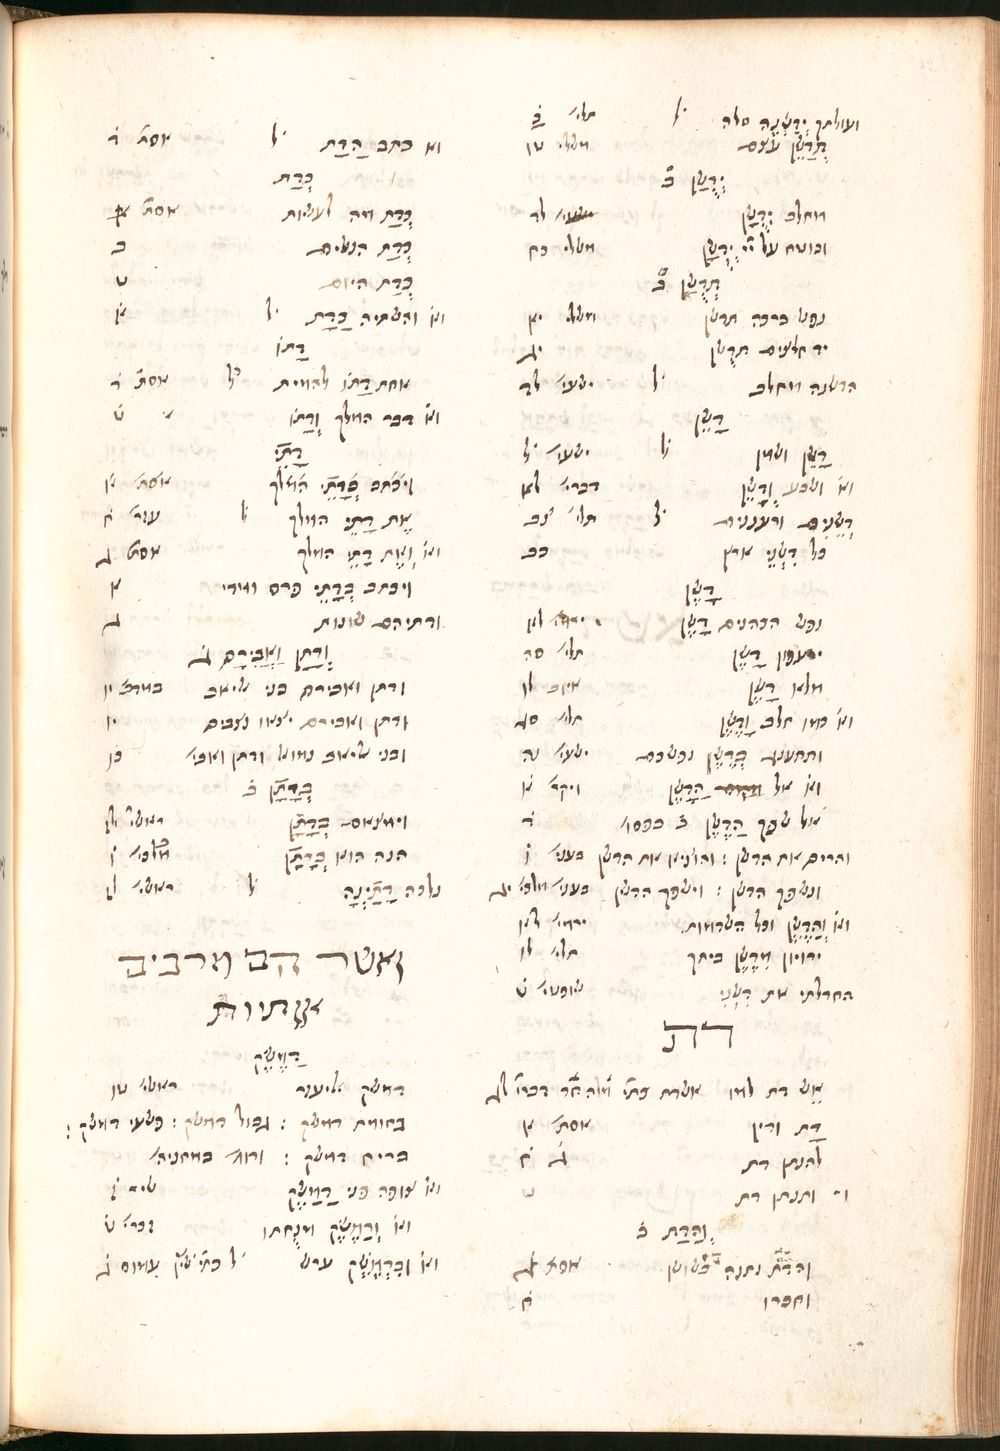 ועולתך יְדַשְּׁנֶה סלה ל' תלי' כ
תְּדַשֵּׁן עצם משלי טו
יְדֻשַּׁן ב
מחלב יְדֻשָּׁן ישעי' לד
ובוטח על יי' יְדֻשָּׁן משלי כח
תְּדֻשַּׁן ב
נפש ברכה תדשן משלי יא
יד חרצים תדשן יג
הדשנה מחלב ל' ישעי' לד
דָּשֵׁן
דָּשֵׁן ושמן ל' ישעי' ל
וא' ושבע וְדָשֵׁן דברי' לא
דְּשֵׁנִים ורעננים ל' תלי' צב
כל דִּשְׁנֵי ארץ כב
דֶּשֶׁן
נפש הכהנים דָּשֶׁן ירמי' לא
ירעפון דָּשֶׁן תלי' סה
מלאו דָשֶׁן איוב לו
וא' כמו חלב וָדֶשֶׁן תלי' סג
ותתענג בַּדֶּשֶׁן נפשכם ישעי' נה
וא' אל הַדֶּשֶׁן ויקר' א
אל שפך הַדֶּשֶׁן ב' בפסו' ד
והרים את הדשן : והוציא את הדשן בעני' ו
ונשפך הדשן : וישפך הדשן בעני' מלכי' יג
וא' וְהַדֶּשֶׁן וכל השרמות ירמי' לא
ירויון מִדֶּשֶׁן ביתך תלי' לו
החדלתי את דִּשְׁנִי שופטי' ט
דת
אש דת למו דברי' לג
דָּת ודין אסת' א
להנתן דת ג' ח
ו' ותנתן דת ט
וְהַדָּת ב
והדת נתנה בשושן אסת' ג
וחברו ח
וא' כתב הַדָּת ל' אסת' ד
כְּדָת
כְּדָת מה לעשות אסת' א
כְּדָת הנשים ב
כְּדָת היום ט
וא' והשתיה כַדָּת ל' א
דָּתוֹ
אחת דָּתוֹ להמית ל' אסת' ד
וא' דבר המלך וְדָתוֹ ט
דָּתֵי
ויכתב בְּדָתֵי המלך אסת' א
את דָּתֵי המלך ל' עזר' ח
וא' וְאֶת דָּתֵי המלך אסת' ג
ויכתב בְּדָתֵי פרס ומדי א
ודתיהם שונות ג
וְדָתָן וַאֲבִירָם ג
ודתן ואבירם בני אליאב במדב' יו
ודתן ואבירם יצאו נצבים יו
ובני אליאב נמואל ודתן ואבי' כו
בְּדֹתָן ב
וימצאם בְּדֹתָן ראשי' לז
הנה הוא בְדֹתָן מלכי' ו
נלכה דֹּתָיְנָה ל' ראשי' לז
ואשר הם מרבים
אותיות
דַּמֶּשֶׂק
דמשק אליעזר ראשי' טו
בחומת דמשק : גבול דמשק : פשעי דמשק :
בריח דמשק : וחזאל במחניה
וא' צופה פני דַמָּשֶׂק שיר' ז
וא' וְדַמֶּשֶׂק מנחתו זכרי' ט
וא' וּבִדְמֶשֶׁק ערש ל' עמוס ג